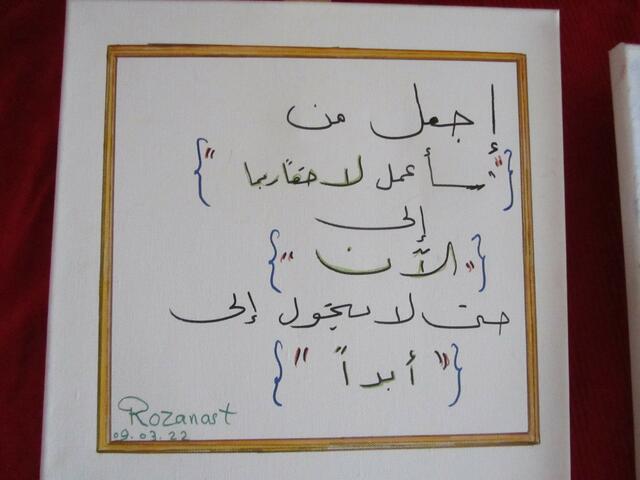 إجعل من
{"سأعمل لاحقاً ربما"}
إلى
{"الآن"}
حتى لا يتحول إلى
{"أبداً"}
Rozanast
09.03.22